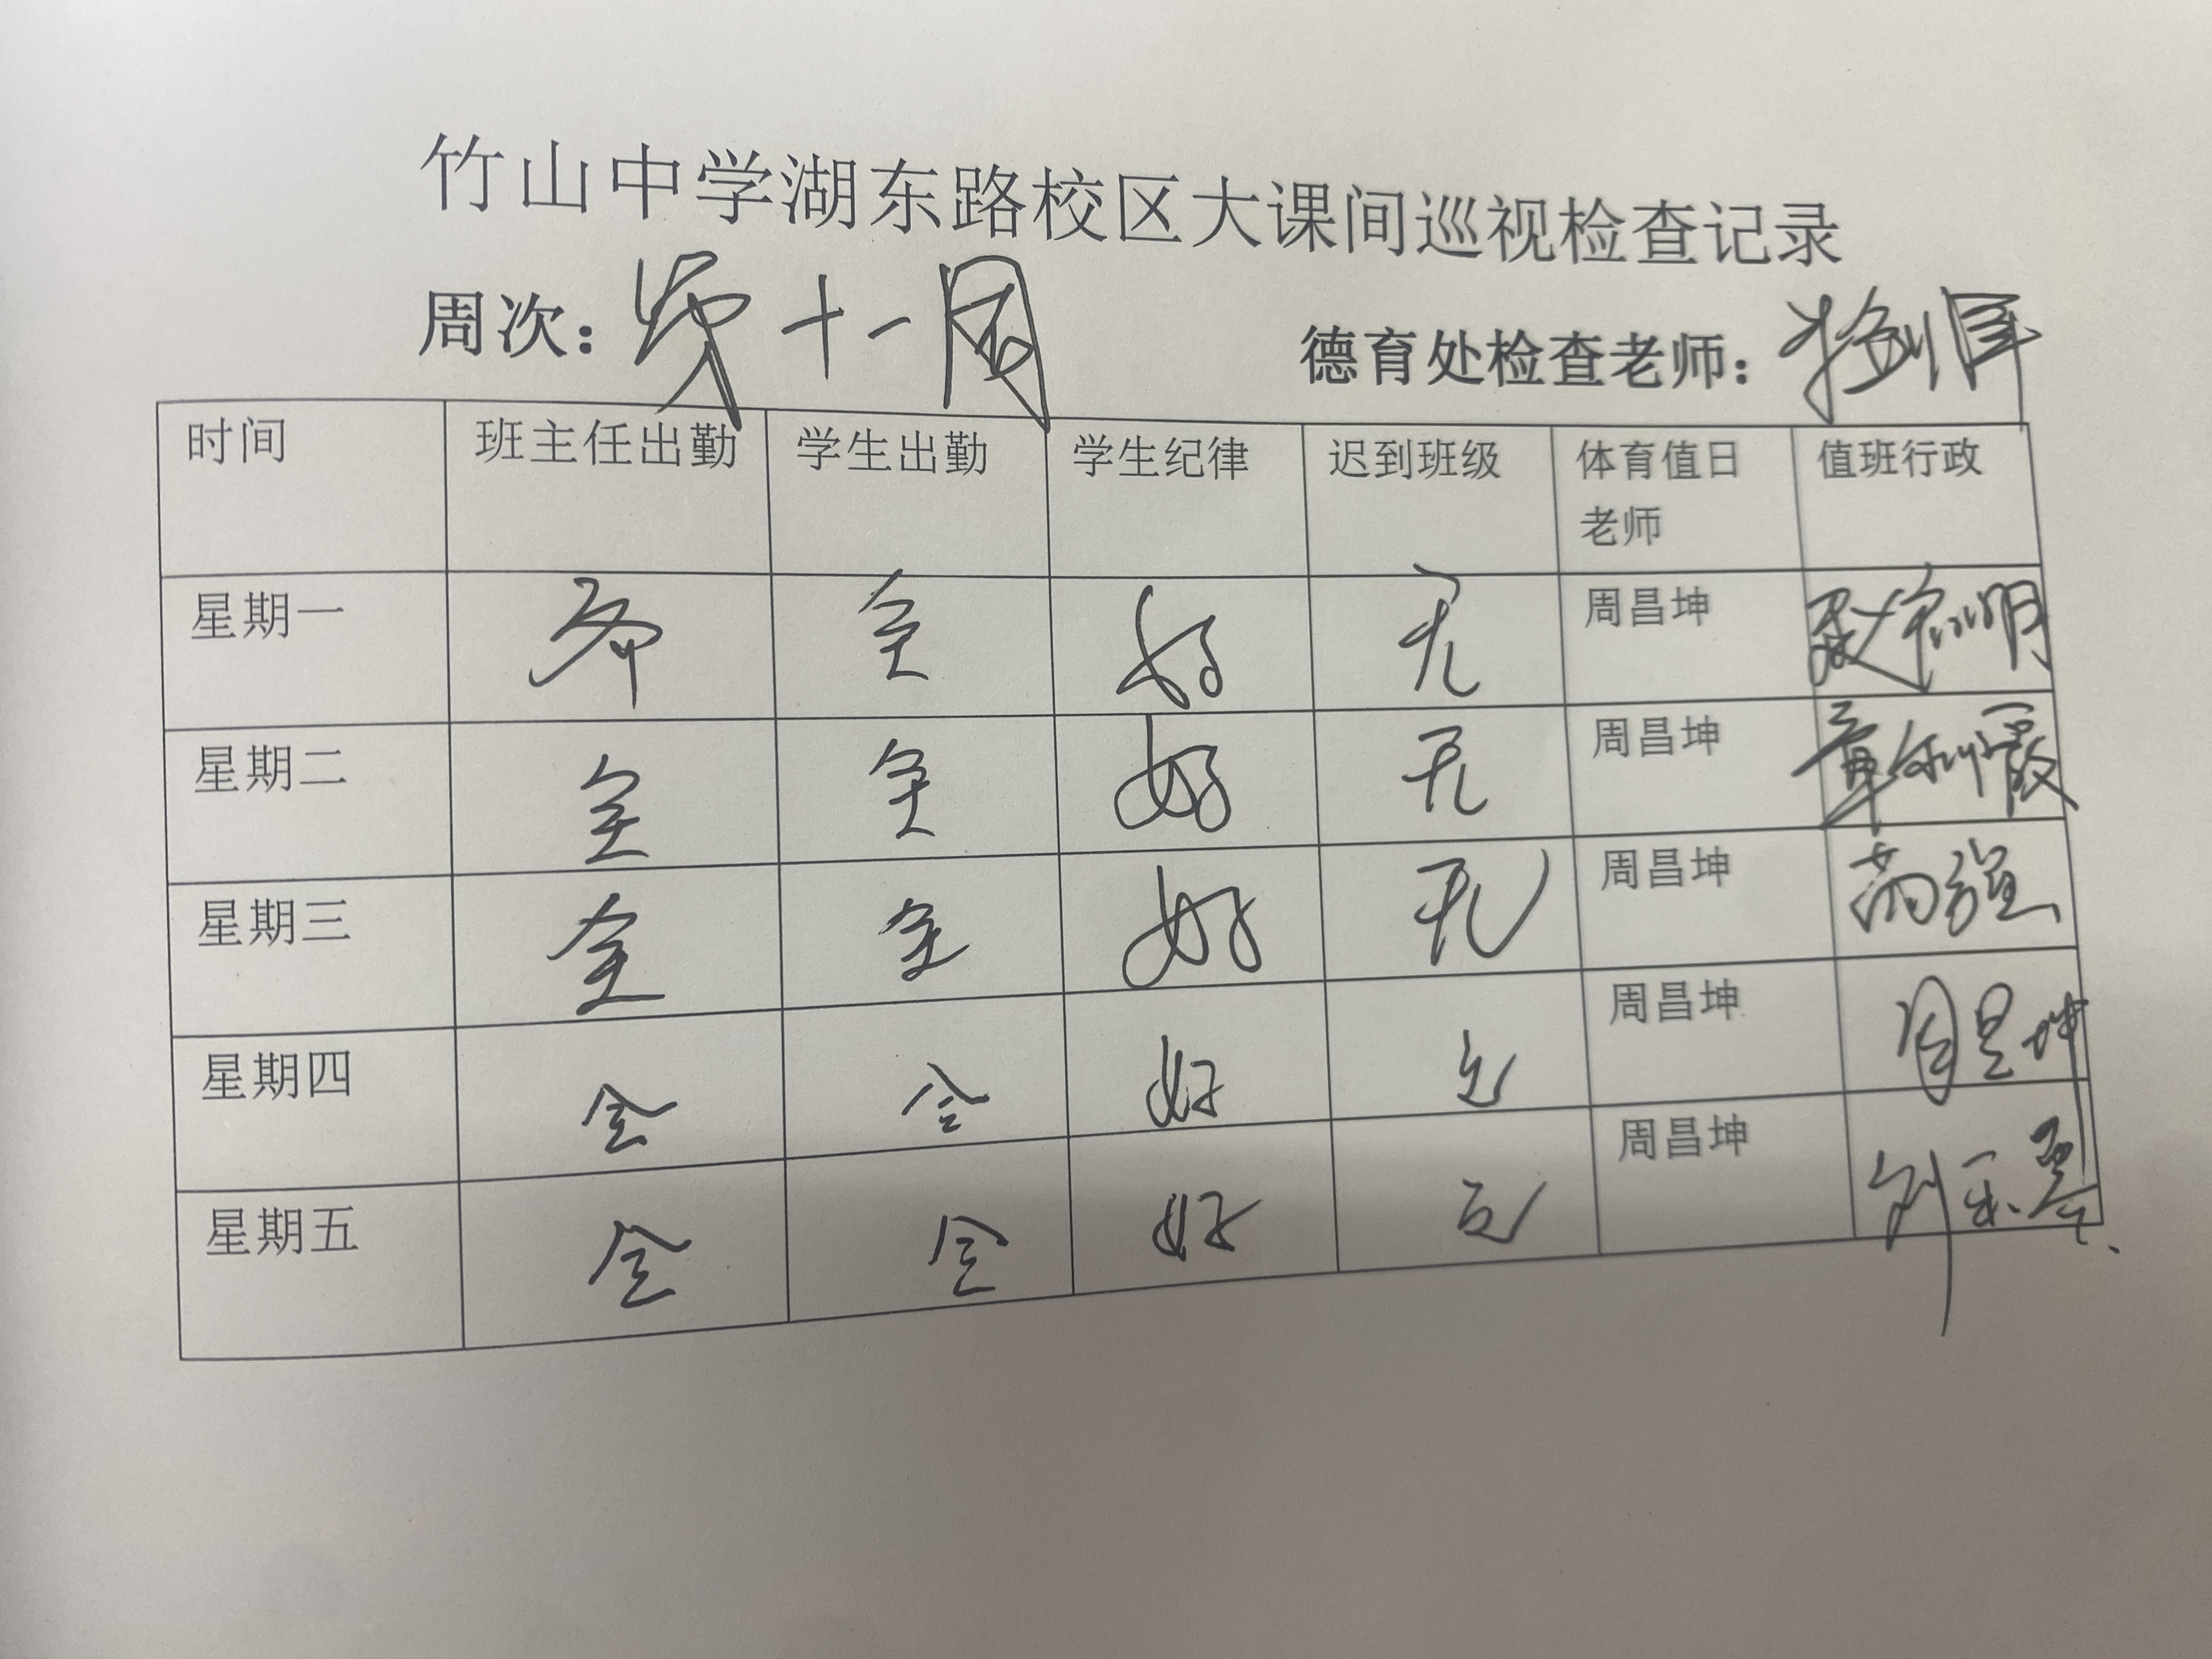 竹山中学湖东路校区大课间巡视检查记录
周次：第十一周 德育处检查老师：
时间 班主任出勤 学生出勤 学生纪律 迟到班级 体育值日老师 值班行政
星期一 齐 全 好 无 周昌坤
星期二 全 全 好 无 周昌坤
星期三 全 全 好 无 周昌坤
星期四 全 全 好 无 周昌坤 周昌坤
星期五 全 全 好 无 周昌坤